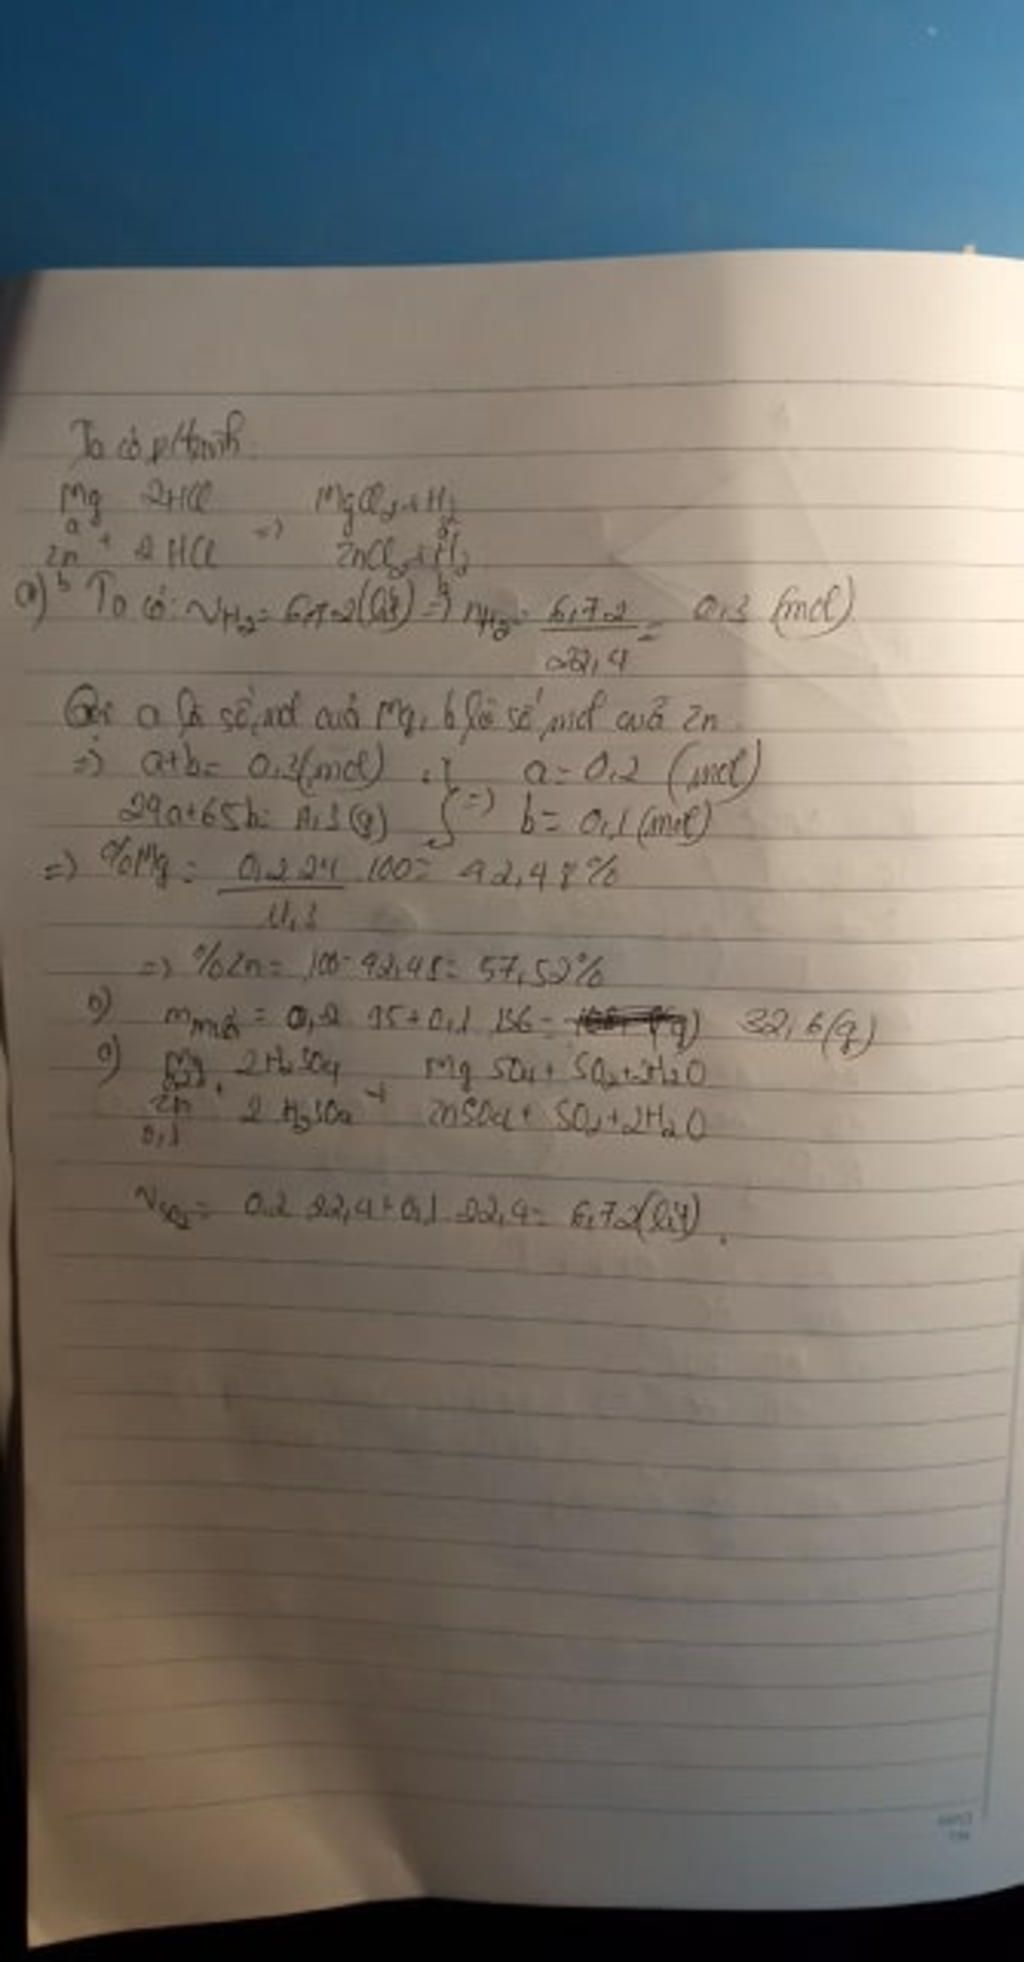 Ta có p/trình:
Mg 2HCl MgCl2 + H2
a
Zn + 2HCl => ZnCl2 + H2
b
a) Ta có: VH2 = 6,72 (lít) => nH2 = 6,72 / 22,4 = 0,3 (mol)
Gọi a là số mol của Mg, b là số mol của Zn
=> a+b = 0,3 (mol) } a = 0,2 (mol)
24a+65b = 11,3 (g) } => b = 0,1 (mol)
=> %Mg = 0,2.24 / 11,3 .100 = 42,48%
=> %Zn = 100 - 42,48 = 57,52%
b) m muối = 0,2 95 + 0,1 136 = 32,6 (g)
c) Mg 2H2SO4 MgSO4 + SO2 + 2H2O
Zn + 2H2SO4 -> ZnSO4 + SO2 + 2H2O
0,1
VSO2 = 0,2 22,4 + 0,1 22,4 = 6,72 (lít).